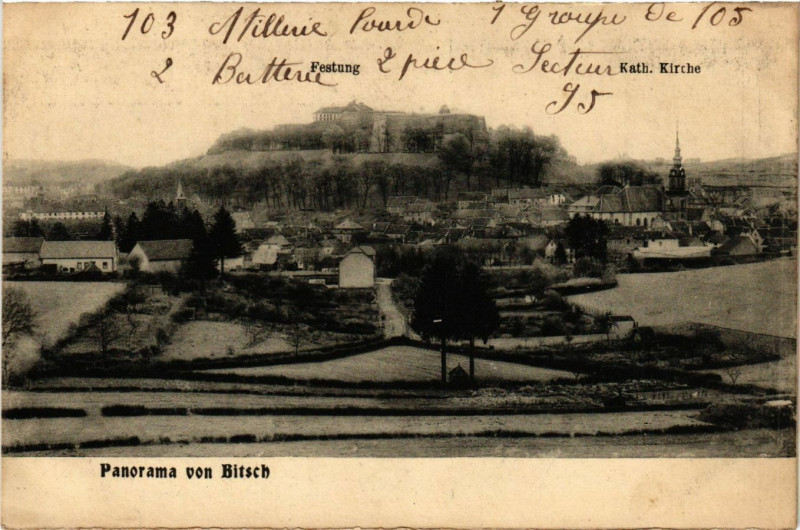 103 Artillerie Lourde 1 Groupe de 105
2 Batterie 2 pièce Secteur
95
Festung
Kath. Kirche
Panorama von Bitsch